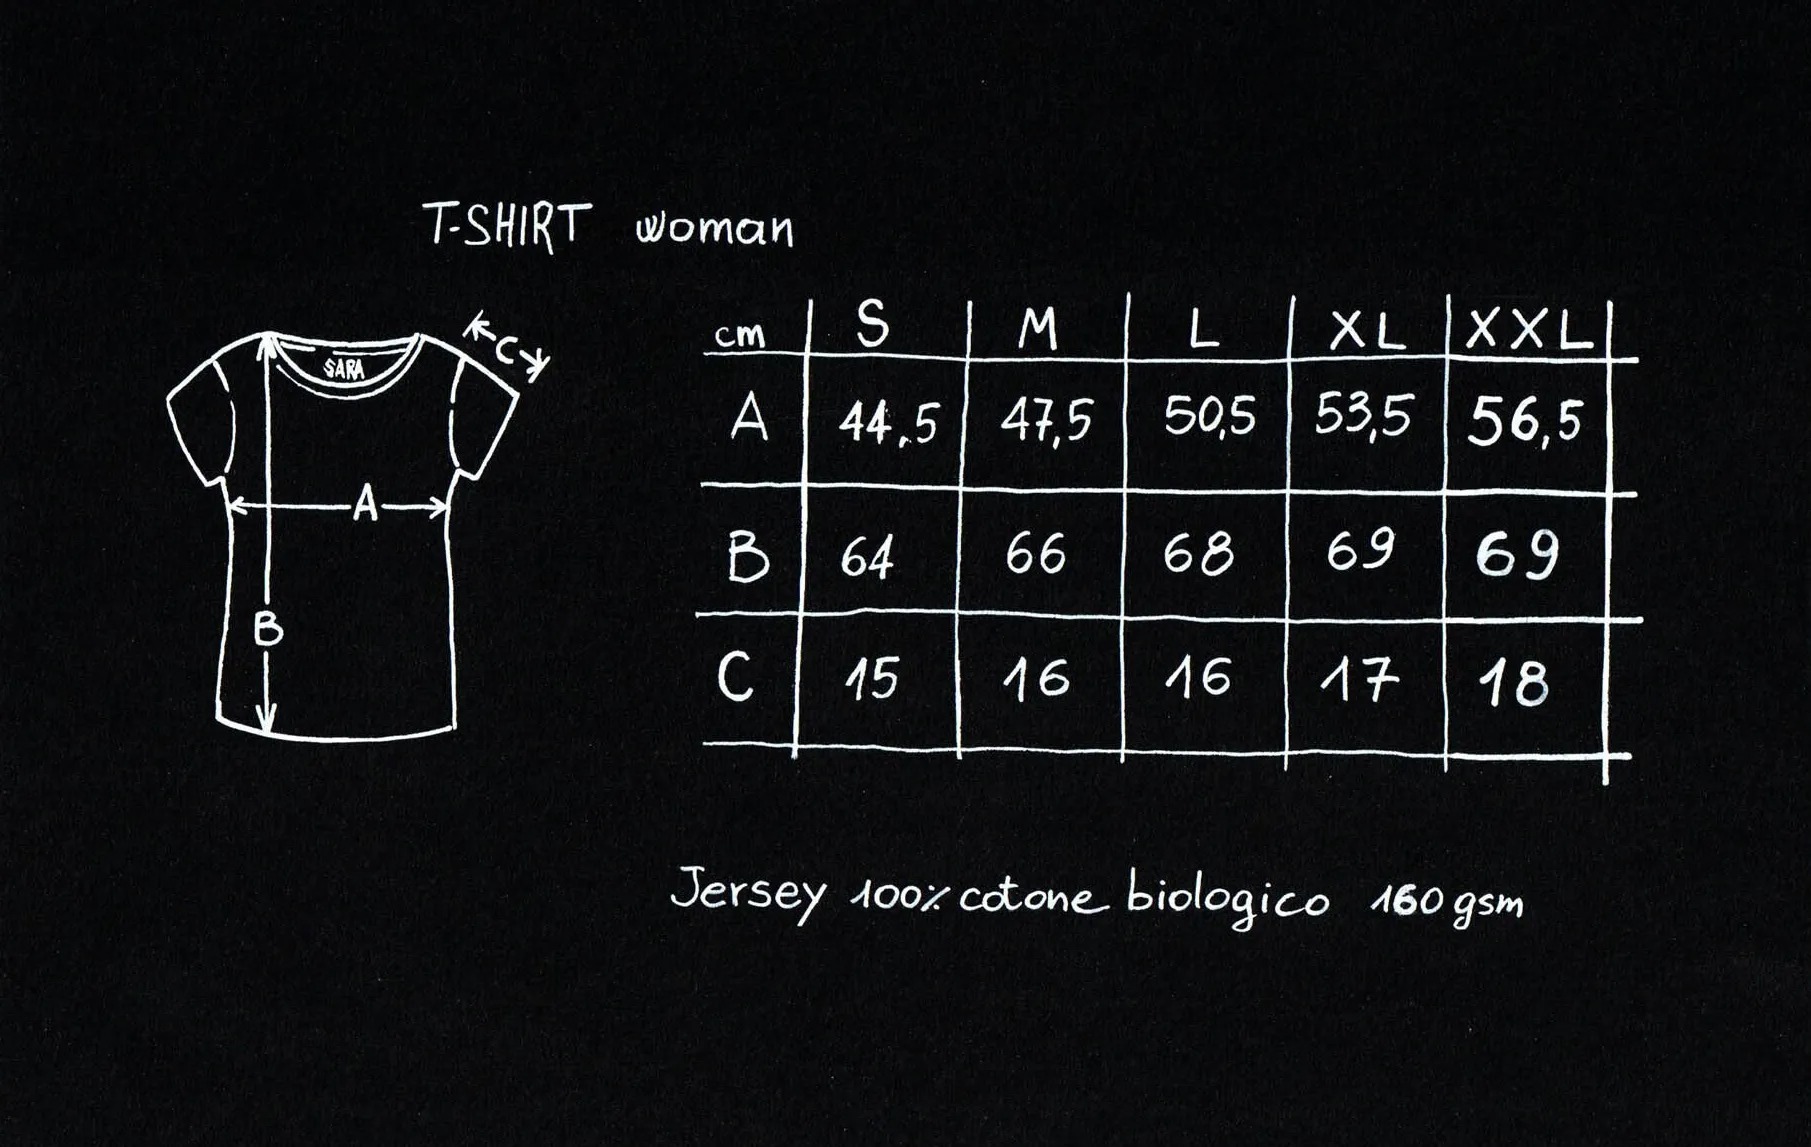 T-SHIRT woman
SARA
C
A
B
cm S M L XL XXL
A 44,5 47,5 50,5 53,5 56,5
B 64 66 68 69 69
C 15 16 16 17 18
Jersey 100% cotone biologico 160 gsm